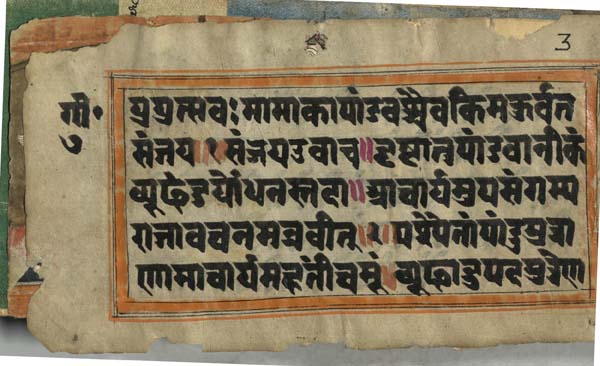 3
गी॰
७
युयुत्सवः मामाकापांडवश्चैवकिमकुर्वत
संजय ॥१॥ संजयउवाच ॥ दृष्ट्वातुपांडवानीकं
व्यूढंदुर्योधनस्तदा ॥ आचार्यमुपसंगम्य
राजावचनमब्रवीत् ॥२॥ पश्यैतांपांडुपुत्रा
णामाचार्यमहतींचमूं ॥ व्यूढांद्रुपदपुत्रेण